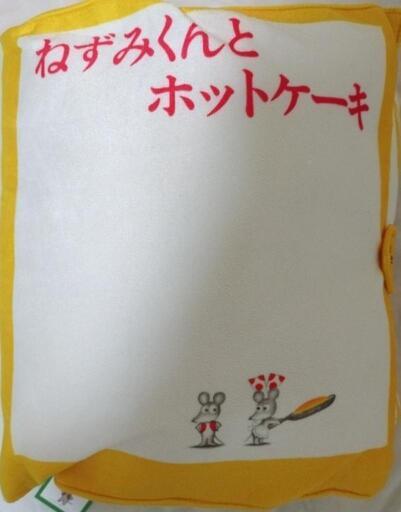 ねずみくんと
ホットケーキ